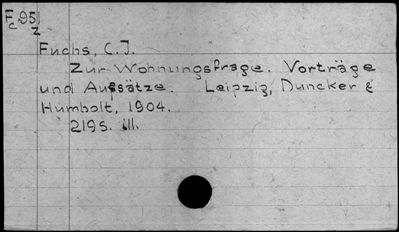 Fc95
z
Fuchs, C.J.
Zur Wohnungsfrage. Vorträge
und Aufsätze. Leipzig, Duncker &
Humbolt, 1904.
219s. ill.